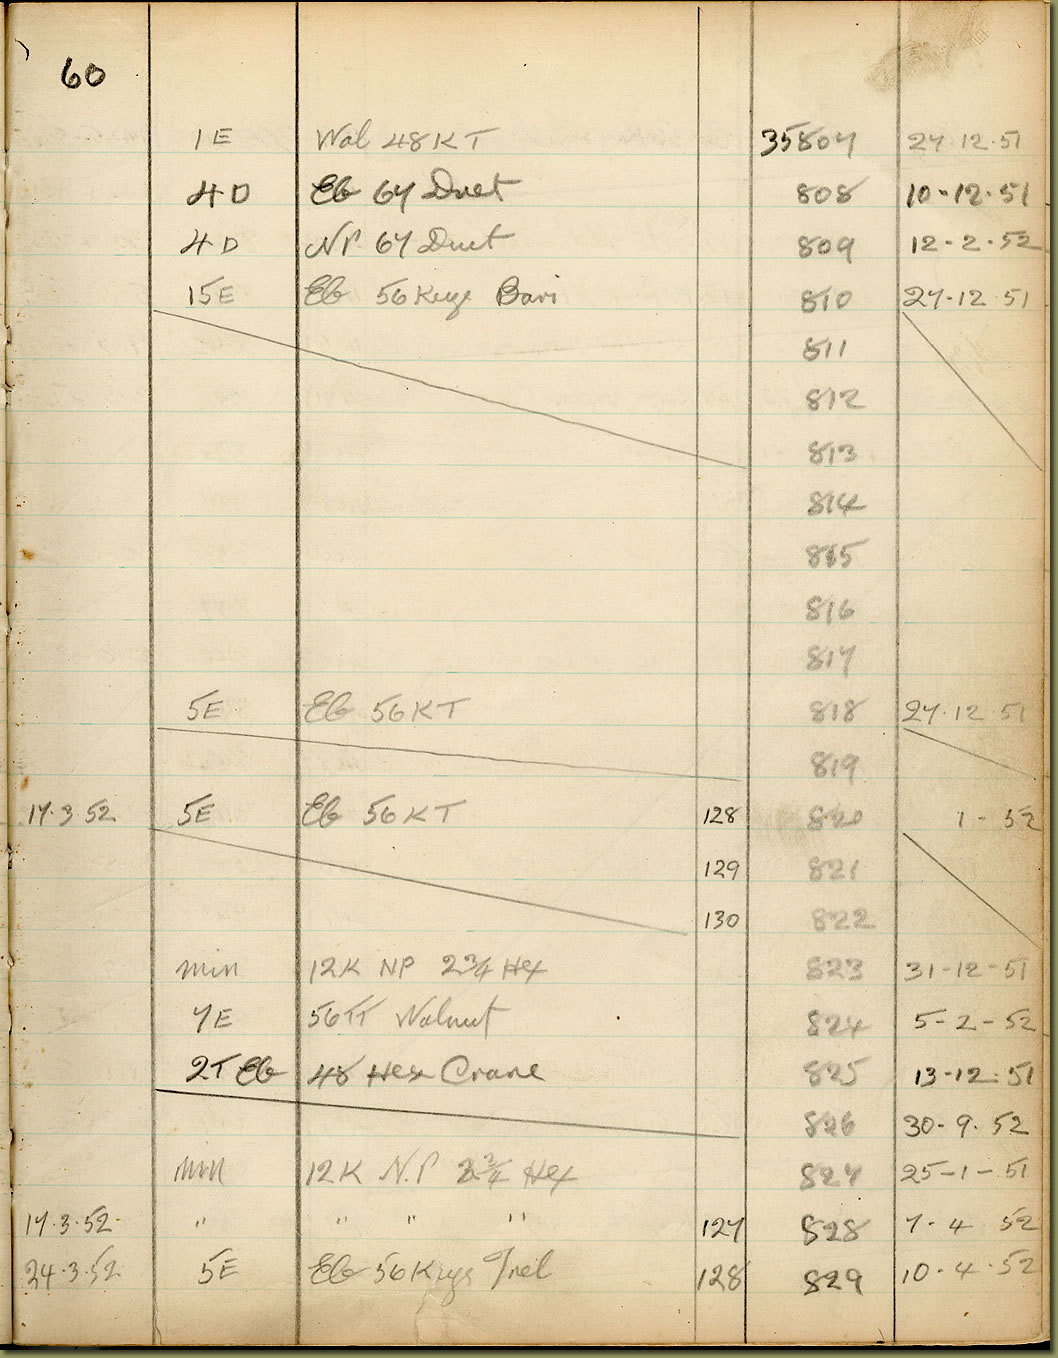 60
1E Wal 48KT 35807 27.12.51
4D Eb 67 Duet 808 10-12-51
4D NP. 67 Duet 809 12-2-52
15E Eb 56 Keys Bari 810 27-12.51
811
812
813
814
815
816
817
5E Eb 56KT 818 27.12 51
819
17.3 52 5E Eb 56KT 128 820 1 - 52
129 821
130 822
min 12K NP 2¾ Hex 823 31-12-51
7E 56TT Walnut 824 5-2-52
2T Eb 48 Hex Crane 825 13-12.51
826 30-9.52
min 12K N.P 2¾ Hex 827 25-1-51
17.3.52. " " " " 127 828 7-4 52
24.3.52 5E Eb 56 Keys Trel 128 829 10.4.52